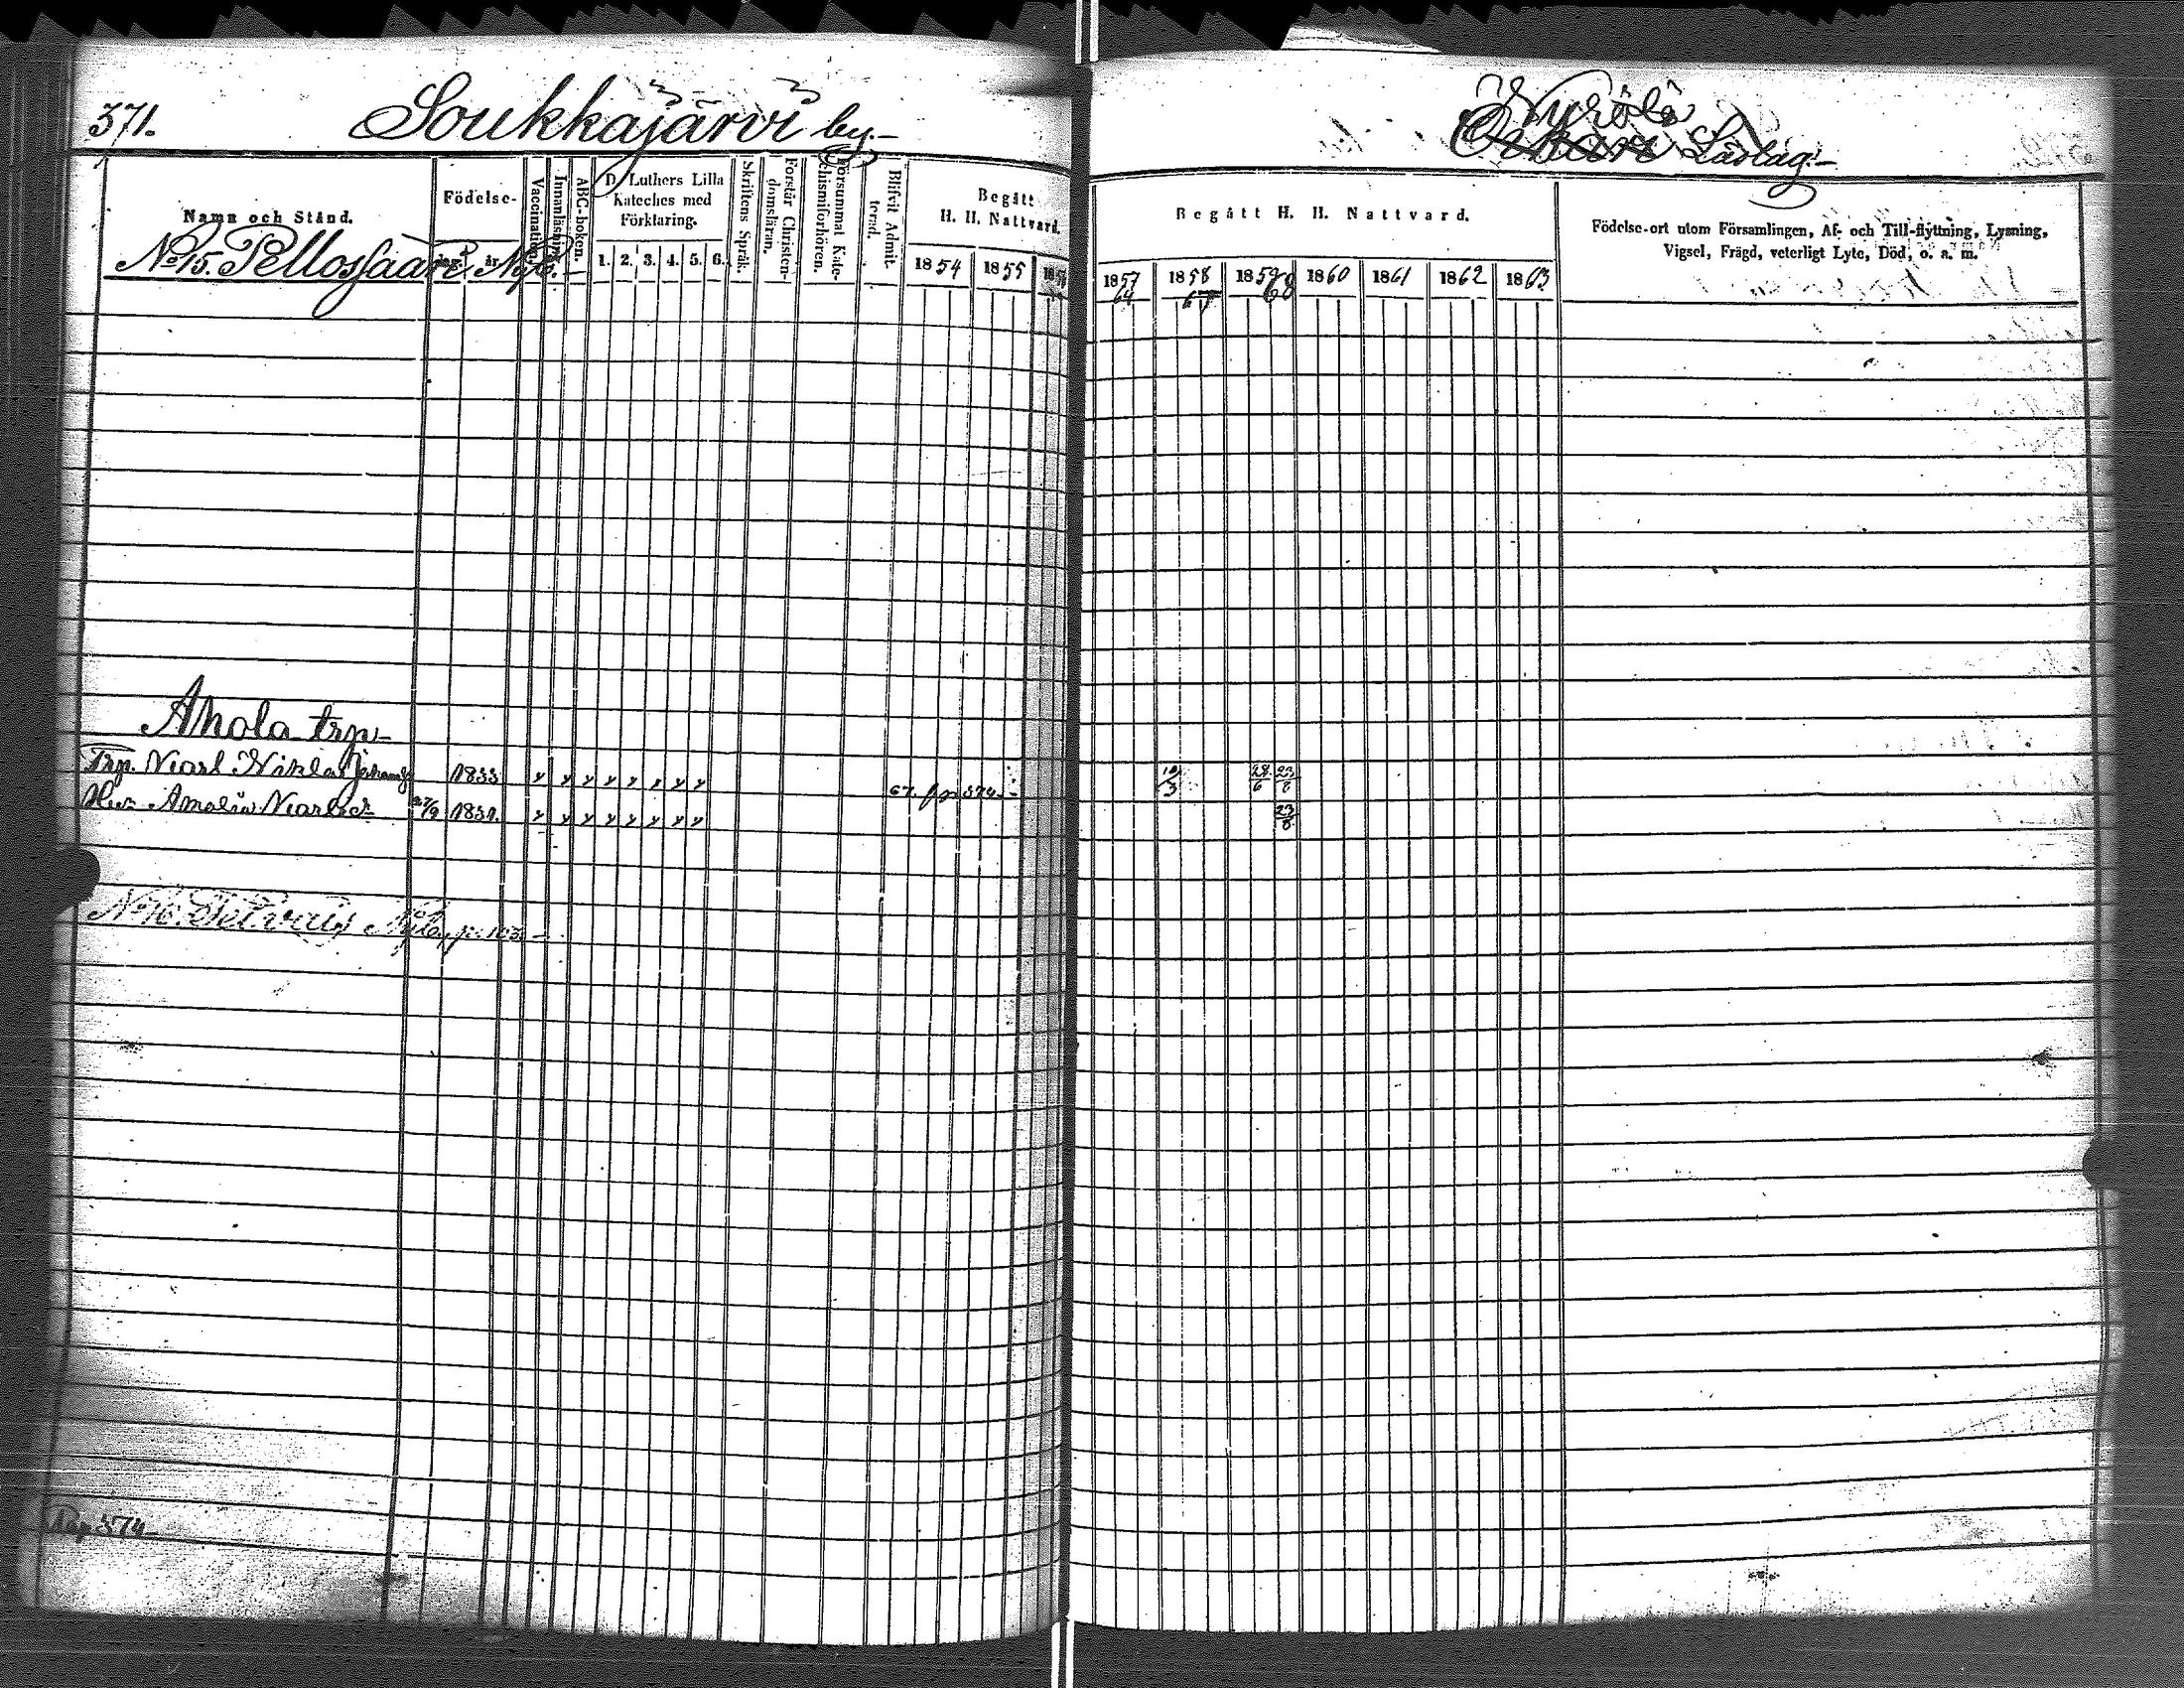 371. Soukkajärvi by.
Nyrölä Läslag.
Namn och Stånd.
Födelse-
dag. år.
Vaccination.
Innanläsning.
ABC-boken.
D. Luthers Lilla
Kateches med
Förklaring.
1. 2. 3. 4. 5. 6.
Skriftens Språk.
Förstår Christen-
domsläran.
Försummat Kate-
chismiförhören.
Blifvit Admit-
terad.
Begått
H. H. Nattvard.
1854 1855 1856
Begått H. H. Nattvard.
1857 1858 1859 1860 1861 1862 1863
64 67 68
Födelse-ort utom Församlingen, Af- och Till-flyttning, Lysning,
Vigsel, Frägd, veterligt Lyte, Död, o. a. m.
No 15. Pellossaari Nyb.
Ahola trp
Trp. Karl Niklas 1833 67. fr p 374. 10/3 28/6 23/8
Hu. Amalia 27/9 183 23/8
No 16. Nyby
374